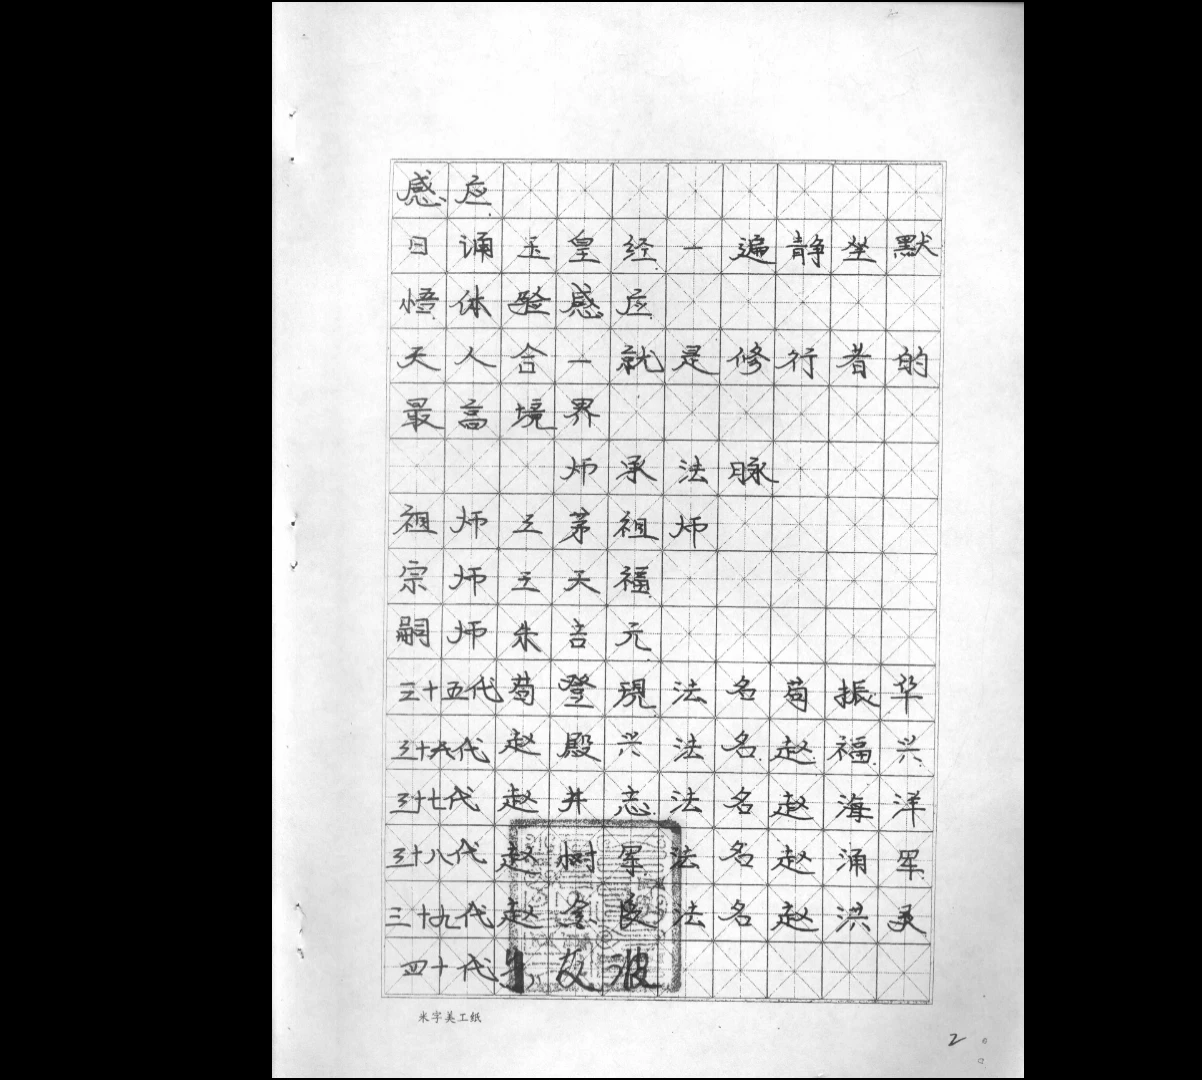 感应
日诵玉皇经一遍静坐默
悟体验感应
天人合一就是修行者的
最高境界
师承法脉
祖师三茅祖师
宗师王天福
嗣师朱吉元
三十五代苟登現法名苟振华
三十六代赵殿兴法名赵福兴
三十七代赵井志法名赵海洋
三十八代赵树军法名赵涌军
三十九代赵金良法名赵洪灵
四十代
米字美工纸
2